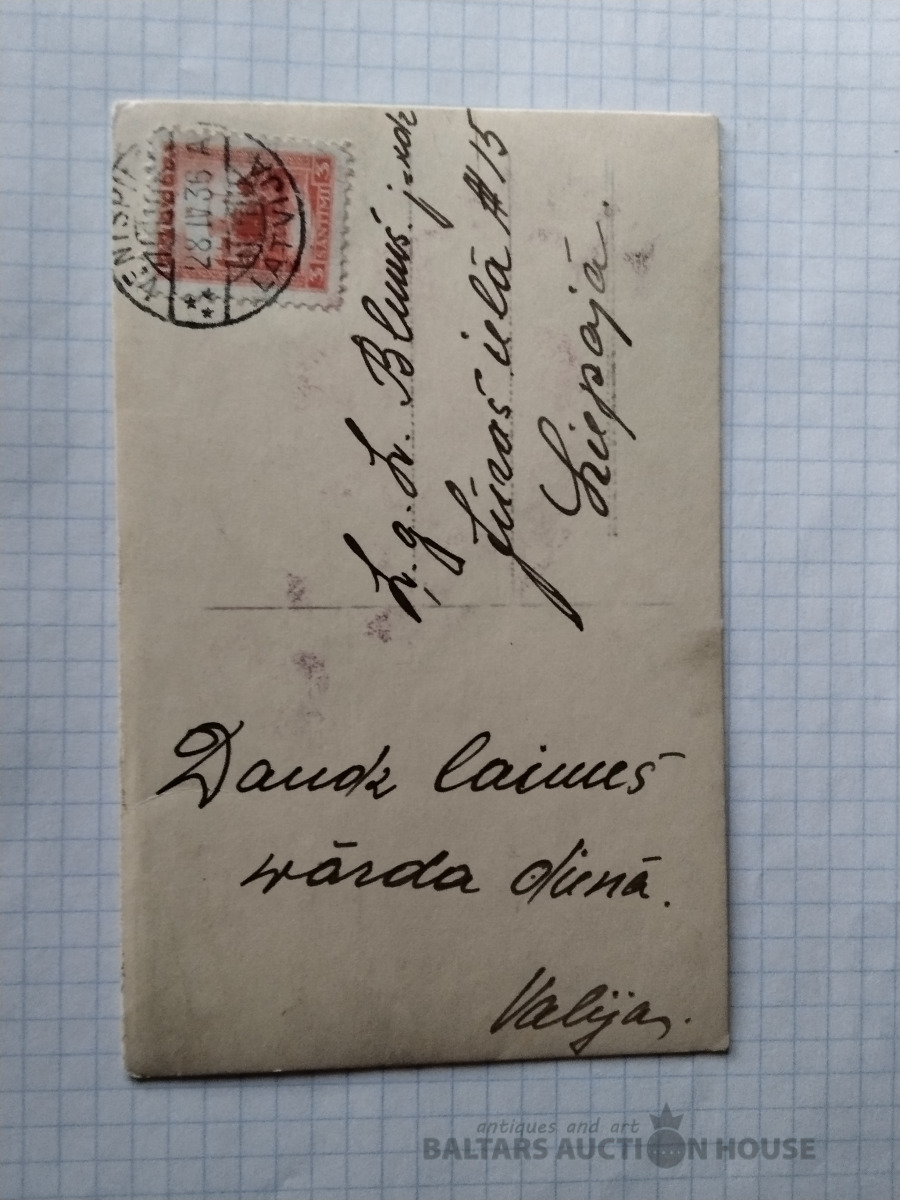 VENTSPI
28 IV 36 A
LATVIJA
3 SANTIMI 3
L. g. L. Blumš. j-kdz
Jūras ielā # 15
Liepājā.
Daudz laimes
wārda dienā.
Valija.
antiques and art
BALTARS AUCTION HOUSE